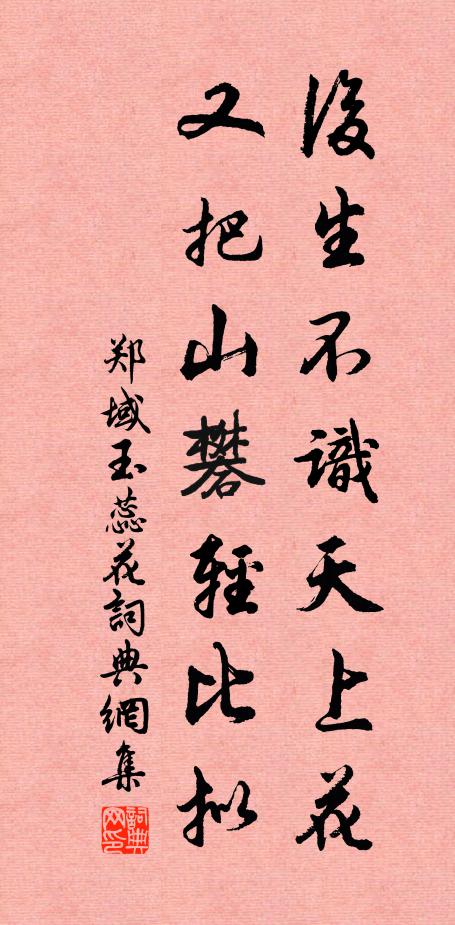 後生不識天上花
又把山礬輕比拟
郑域玉蕊花詞典網集
詞典网印